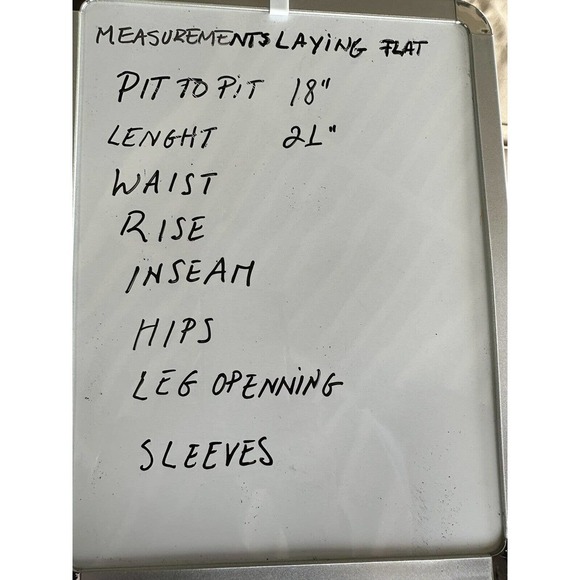 MEASUREMENTS LAYING FLAT
PIT TO PIT 18"
LENGHT 21"
WAIST
RISE
INSEAM
HIPS
LEG OPENNING
SLEEVES